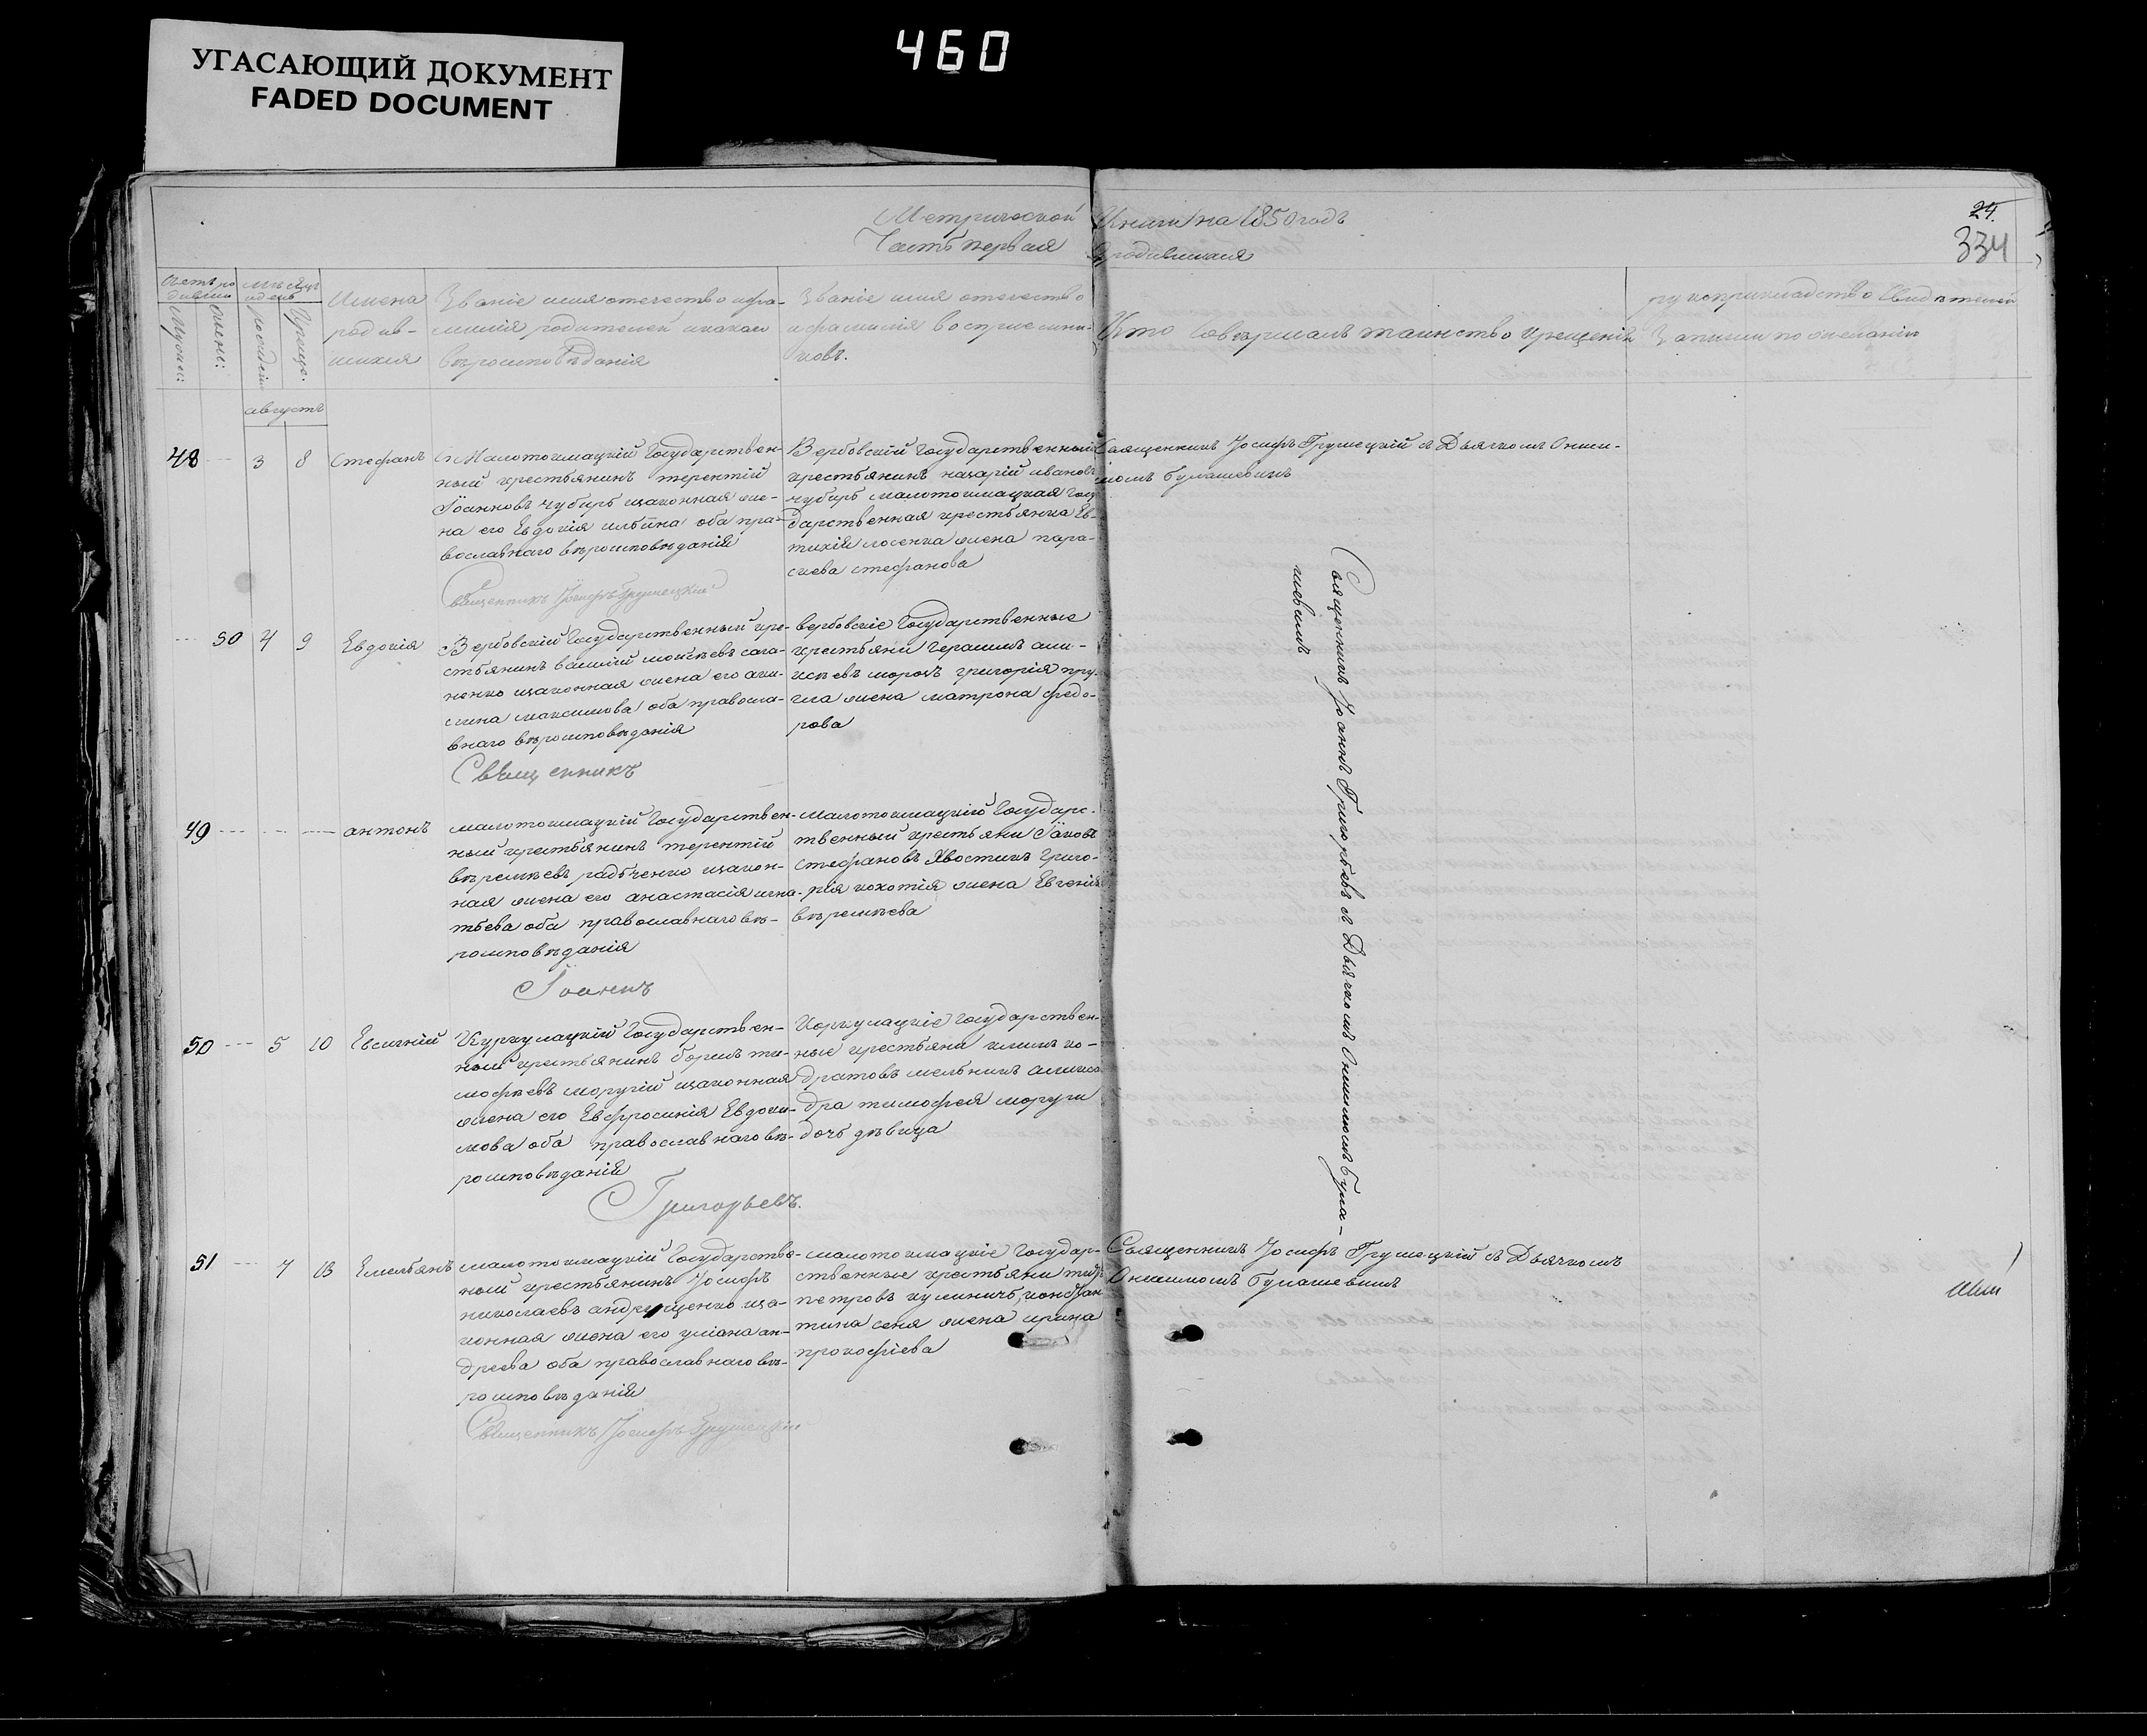 460
УГАСАЮЩИЙ ДОКУМЕНТ
FADED DOCUMENT
24.
334
Метрической Книги на 1850 годъ
Часть первая О родившихся
Счетъ родившихся
Мужес:
Женс:
мѣсяцъ и день
рожденія
Креще.
Имена родив-
шихся
Званіе имя отечество и фа-
милія родителей и какого
вѣроисповѣданія
Званіе имя отечество
и фамилія воспріемни-
ковъ.
Кто Совершалъ таинство крещенія
рукоприкладство Свидѣтелей
Записи по желанію
августъ
48 3 8 Стефанъ
С. Малотокмацкій Государствен-
ный крестьянинъ терентій
Іоанновъ чубиръ изаконная же-
на его Евдокія ильина оба пра-
вославнаго вѣроисповѣданія
Вербовскій Государственный
крестьянинъ назарій ивановъ
чубиръ малотокмацкая Госу
дарственная крестьянка Ев-
тихія лосенка жена пара-
скева стефанова
Священникъ Іосифъ Грушецкій съ Дьячкомъ Ониси-
момъ
Священникъ Іосифъ Грушецкій
50 4 9 Евдокія
Вербовскій Государственный кре-
стьянинъ василій моисѣевъ сага-
ненко изаконная жена его аки-
лина максимова оба правосла-
внаго вѣроисповѣданія
вербовскіе Государственные
крестьяни Герасимъ
морозъ григорія
жена матрона федо-
рова
Священникъ
49 антонъ
малотокмацкій Государствен-
ный крестьянинъ терентій
вѣремѣевъ радченко изакон-
ная жена его анастасія игна-
тьева оба православнаго вѣ-
роисповѣданія
малотокмацкій Государс-
твенный крестьяни Іаковъ
стефановъ Хвостикъ Григо-
рія кокотія жена Евгенія
вѣремѣева
Іоаннъ
50 5 10 Евсигній
Куркулацкій Государствен-
ный крестьянинъ борисъ ти-
мофѣевъ моругій изаконная
жена его Евфросинія Евдоки-
мова оба православнаго вѣ-
роисповѣданія
Коркулацкіе Государствен-
ные крестьяни климъ ко-
дратовъ мельникъ алекса
дра тимофея моруги
дочь дѣвица
Григорьевъ.
Священникъ Іоаннъ Григорьевъ съ Дьячкомъ Онисимомъ
51 7 13 Емельянъ
малотокмацкій Государстве-
ный крестьянинъ Іосифъ
николаевъ андрущенко иза-
конная жена его уліана ан-
дреева оба православнаго вѣ-
роисповѣданія
малотокмацкіе Государ-
ственные крестьяни
петровъ кулиничъ, констан
тина сеня жена ирина
прокофіева
Священникъ Іосифъ Грушецкій съ Дьячкомъ
Онисимомъ
Священникъ Іосифъ Грушецкій